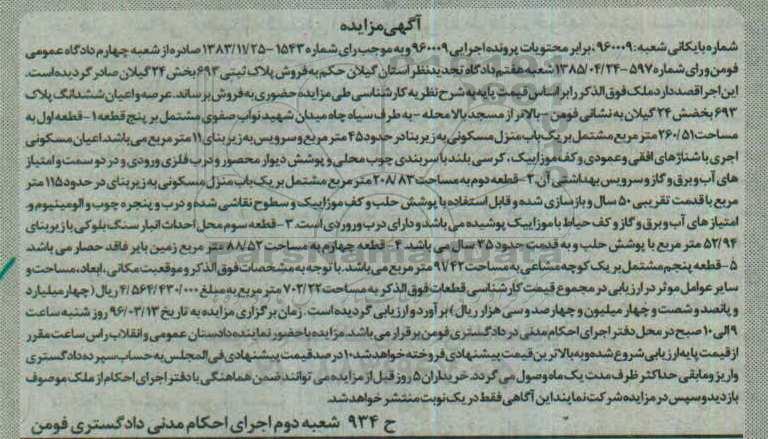 آگهی مزایده
شماره بایگانی شعبه: ۹۶۰۰۰۹، برابر محتویات پرونده اجرایی ۹۶۰۰۰۹ و به موجب رای شماره ۱۵۴۳ - ۱۳۸۳/۱۱/۲۵ صادره از شعبه چهارم دادگاه عمومی
فومن و رای شماره ۵۹۷ - ۱۳۸۵/۰۴/۲۴ شعبه هفتم دادگاه تجدیدنظر استان گیلان حکم به فروش پلاک ثبتی ۶۹۳ بخش ۲۴ گیلان صادر گردیده است.
این اجرا قصد دارد ملک فوق الذکر را بر اساس قیمت پایه به شرح نظریه کارشناسی طی مزایده حضوری به فروش برساند. عرصه و اعیان ششدانگ پلاک
۶۹۳ بخضش ۲۴ گیلان به نشانی فومن - بالاتر از مسجد بالا محله - به طرف سیاه چاه میدان شهید نواب صفوی مشتمل بر پنج قطعه ۱- قطعه اول به
مساحت ۲۶۰/۵۱ متر مربع مشتمل بر یک باب منزل مسکونی به زیر بنا در حدود ۴۵ متر مربع و سرویس به زیر بنای ۱۱ متر مربع می باشد. اعیان مسکونی
اجری با شناژهای افقی و عمودی و کف موزاییک، کرسی بلند با سربندی چوب محلی و پوشش دیوار محصور و درب فلزی ورودی و در دو سمت و امتیاز
های آب و برق و گاز و سرویس بهداشتی آن. ۲- قطعه دوم به مساحت ۲۰۸/۸۳ متر مربع مشتمل بر یک باب منزل مسکونی به زیر بنای در حدود ۱۱۵ متر
مربع با قدمت تقریبی ۵۰ سال و بازسازی شده و قابل استفاده با پوشش حلب و کف موزاییک و سطوح نقاشی شده و درب و پنجره چوب و الومینیوم و
امتیاز های آب و برق و گاز و کف حیاط با موزاییک پوشیده می باشد و دارای درب وروردی است. ۳- قطعه سوم محل احداث انبار سنگ بلوکی با زیر بنای
۵۲/۹۴ متر مربع با پوشش حلب و به قدمت حدود ۳۵ سال می باشد. ۴- قطعه چهارم به مساحت ۸۸/۵۲ متر مربع زمین بایر فاقد حصار می باشد.
۵- قطعه پنجم مشتمل بر یک کوچه مشاعی به مساحت ۹۱/۴۲ متر مربع می باشد. با توجه به مشخصات فوق الذکر و موقعیت مکانی، ابعاد، مساحت و
سایر عوامل موثر در ارزیابی در مجموع قیمت کارشناسی قطعات فوق الذکر به مساحت ۷۰۲/۲۲ متر مربع به مبلغ ۴/۵۶۴/۴۳۰/۰۰۰ ریال (چهار میلیارد
و پانصد و شصت و چهار میلیون و چهارصد و سی هزار ریال) برآورد و ارزیابی گردیده است. زمان برگزاری مزایده به تاریخ ۹۶/۰۳/۱۳ روز شنبه ساعت
۹ الی ۱۰ صبح در محل دفتر اجرای احکام مدنی در دادگستری فومن برقرار می باشد. مزایده با حضور نماینده دادستان عمومی و انقلاب راس ساعت مقرر
از قیمت پایه ارزیابی شروع شده و به بالاترین قیمت پیشنهادی فروخته خواهد شد ۱۰ درصد قیمت پیشنهادی فی المجلس به حساب سپرده دادگستری
واریز و مابقی حداکثر ظرف مدت یک ماه وصول می گردد. خریداران ۵ روز قبل از مزایده می توانند ضمن هماهنگی با دفتر اجرای احکام از ملک موصوف
بازدید و سپس در مزایده شرکت نمایند این آگاهی فقط در یک نوبت منتشر خواهد شد.
ح ۹۳۴ شعبه دوم اجرای احکام مدنی دادگستری فومن
ParsNamadData